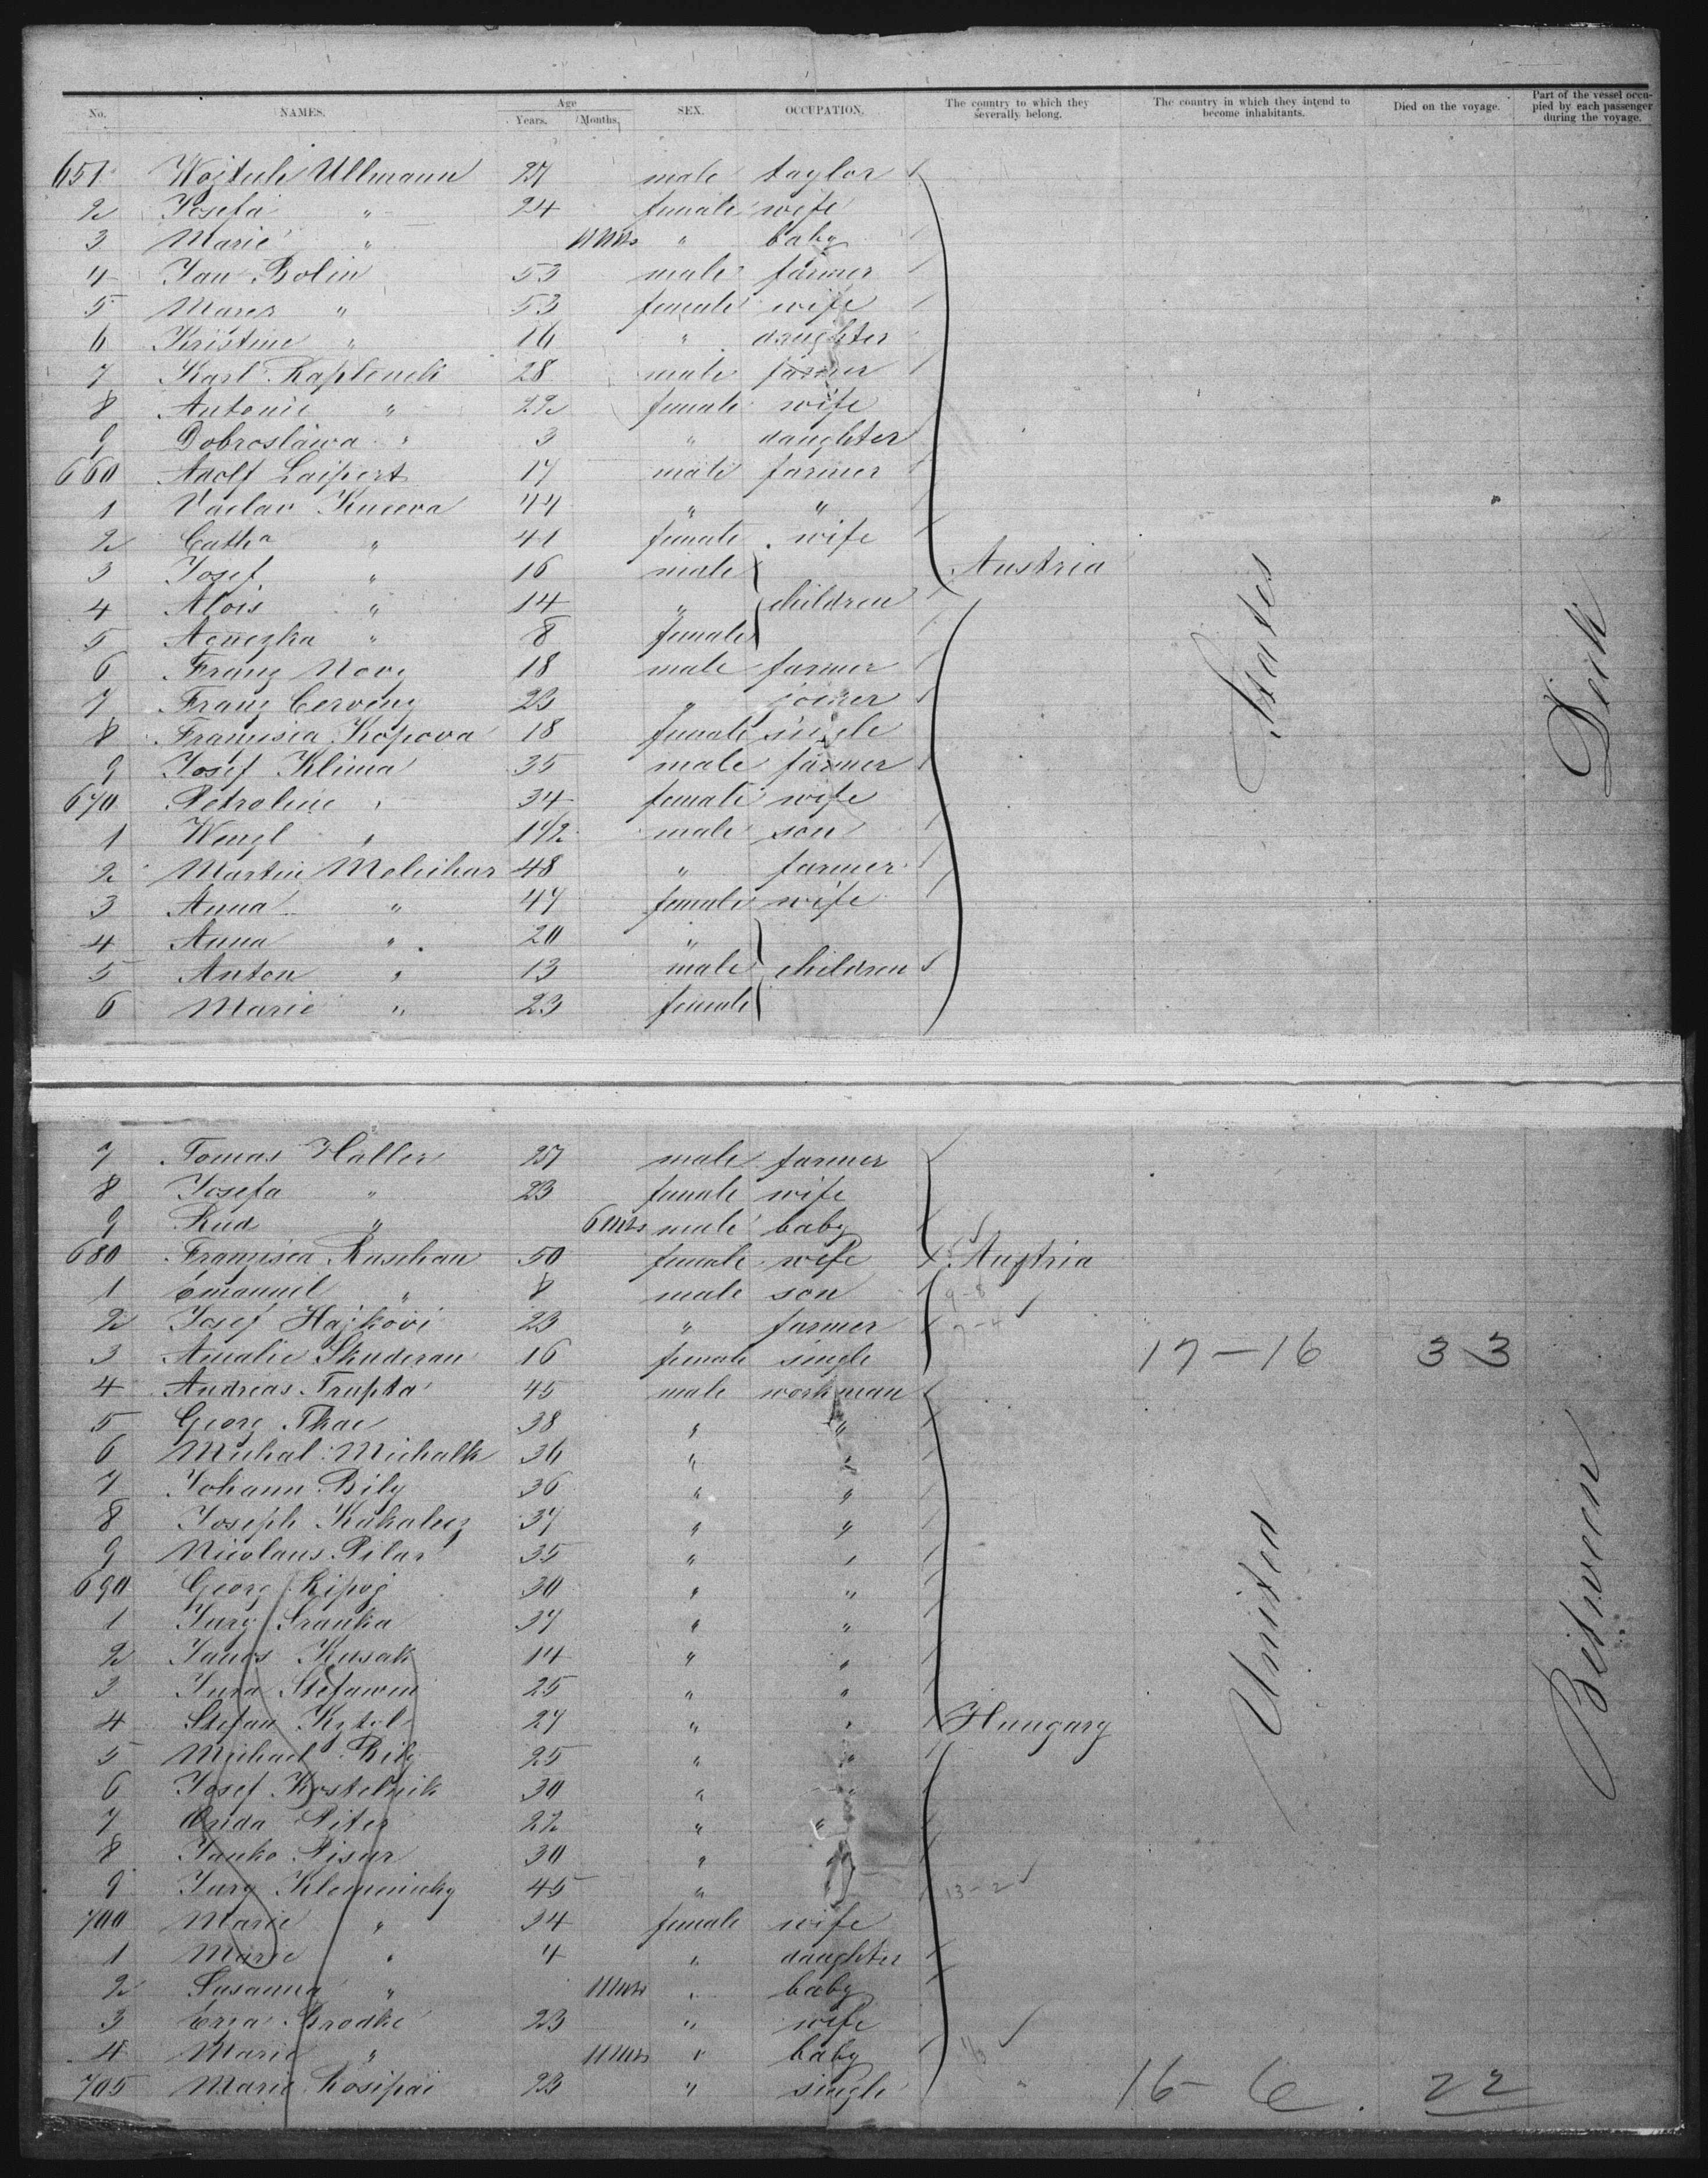 No. NAMES. Age Years. Months. SEX. OCCUPATION. The country to which they severally belong. The country in which they intend to become inhabitants. Died on the voyage. Part of the vessel occupied by each passenger during the voyage.
651 Wojtech Ullmann 27 male taylor
2 Josefa " 24 female wife
3 Marie " 11 Mts " baby
4 Jan Bolin 53 male farmer
5 " 53 female wife
6 Kristine " 16 " daughter
7 Karl Kaplenek 28 male farmer
8 Antonie " 22 female wife
9 Dobroslawa " 3 " daughter
660 Adolf Laipert 17 male farmer
1 Vaclav Kucera 44 " "
2 Catha " 41 female wife
3 Josef " 16 male Austria
4 Alois " 14 " children
5 Agnezka " 8 female
6 Franz Novy 18 male farmer
7 Franz Cerveny 23 " joiner
8 Franzisca Kopova 18 female single
9 Josef Klima 35 male farmer
670 Petroline " 34 female wife
1 Wenzl " 1 1/2 male son
2 Martin Melichar 48 " farmer
3 Anna " 47 female wife
4 Anna " 20 "
5 Anton " 13 male children
6 Marie " 23 female
7 Tomas Haller 27 male farmer
8 Josefa " 23 female wife
9 Rud " 6 Mts male baby
680 Franzisca Ruschan 50 female wife Austria
1 Emanuel " 8 male son 9-8
2 Josef Hajkovi 23 " farmer 7-4
3 Amalie Skuderan 16 female single 17-16 33
4 Andreas Trupta 45 male workman
5 Georg Thac 38 " "
6 Michal Michalk 36 " "
7 Johann Bily 36 " "
8 Joseph Kukalecz 37 " "
9 Nicolaus Pilar 35 " "
690 Georg Lipoj 30 " "
1 Jury Sranka 37 " "
2 Janos Kusak 14 " "
3 Jura Stefawen 25 " "
4 Stefan Kytel 27 " " Hungary
5 Michael Bily 25 " "
6 Josef Kostelnik 30 " "
7 Piter 22 " "
8 Janko Pisar 30 "
9 Jury Klemenicky 45 " 13-2
700 Marie " 34 female wife
1 Marie " 4 " daughter
2 Susanna " 11 Mts " baby
3 Erza Brodke 23 " wife
4 Marie " 11 Mts " baby
705 Marie Kosipai 23 " single 16-6. 22
United States
Between Deck